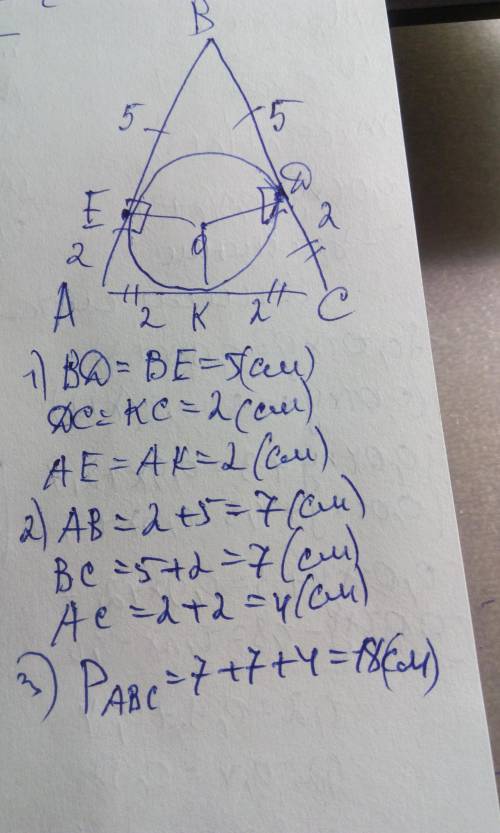 B
5 5
E Д
2 O 2
A 2 K 2 C
1) BД = BE = 5(см)
ДC = KC = 2(см)
AE = AK = 2(см)
2) AB = 2+5 = 7(см)
BC = 5+2 = 7(см)
AC = 2+2 = 4(см)
3) P ABC = 7+7+4 = 18(см)